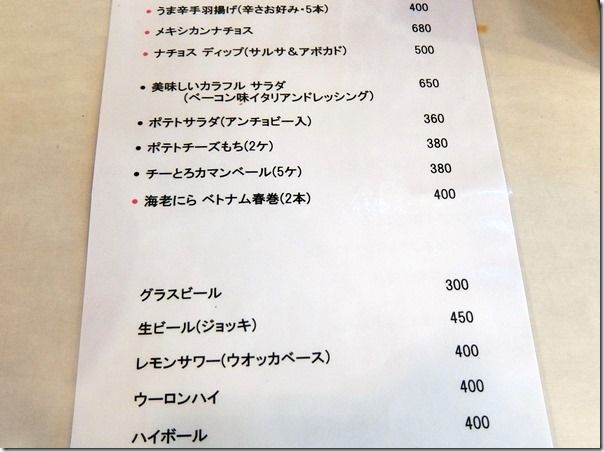 • うま辛手羽揚げ(辛さお好み・5本) 400
• メキシカンナチョス 680
• ナチョス ディップ(サルサ&アボカド) 500
• 美味しいカラフル サラダ 650
(ベーコン味イタリアンドレッシング)
• ポテトサラダ(アンチョビー入) 360
• ポテトチーズもち(2ケ) 380
• チーとろカマンベール(5ケ) 380
• 海老にら ベトナム春巻(2本) 400
グラスビール 300
生ビール(ジョッキ) 450
レモンサワー(ウオッカベース) 400
ウーロンハイ 400
ハイボール 400